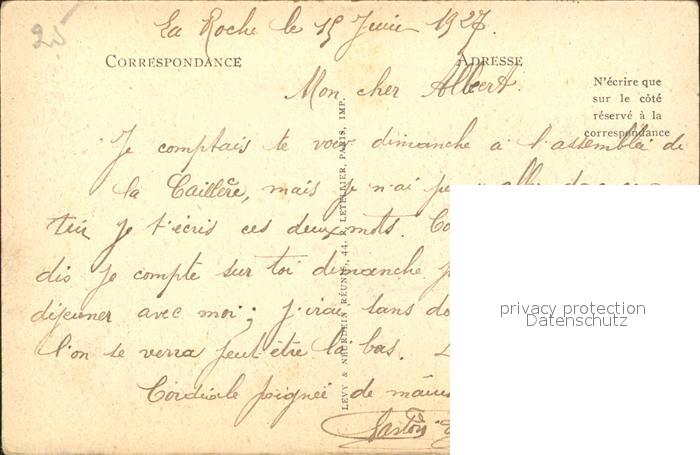 La Roche le 15 Juin 1927.
CORRESPONDANCE
ADRESSE
Mon cher Albert.
N'écrire que
sur le côté
réservé à la
correspondance
Je comptais te voir dimanche à l'assemblée de
la Caillère, mais je n'ai
je t'écris ces deux mots.
dis je compte sur toi dimanche
déjeuner avec moi; j'irai sans
l'on se verra peut-être là bas.
Cordiale poignée de mains
Gaston
LEVY & NEURDEIN RÉUNIS, 44, R. LETELLIER, PARIS, IMP.
privacy protection
Datenschutz